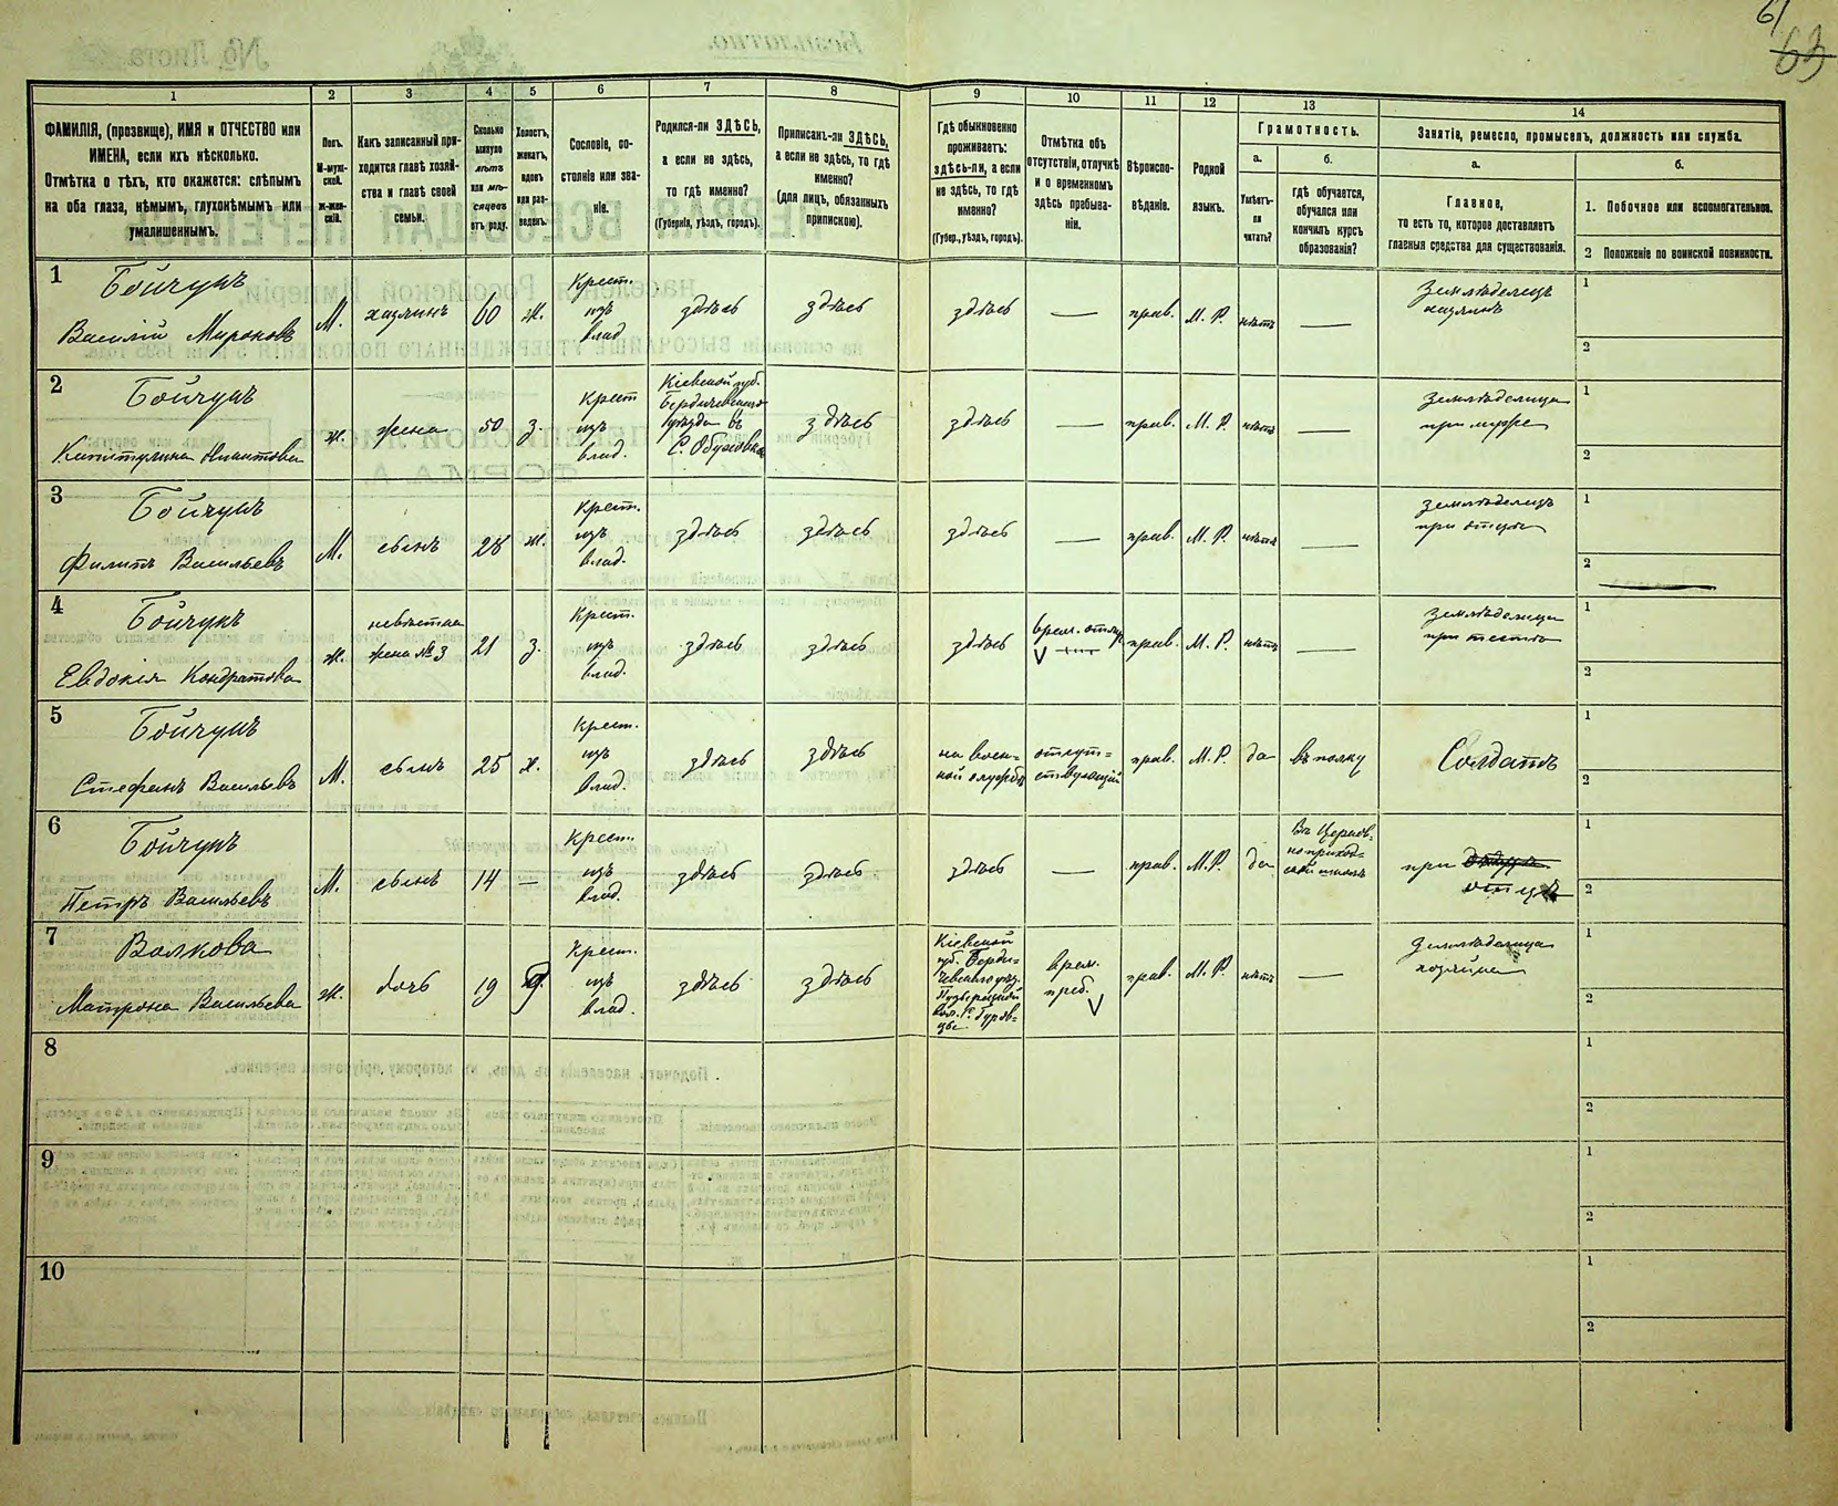 61
63
1
2
3
4
5
6
7
8
9
10
11
12
13
14
ФАМИЛІЯ, (прозвище), ИМЯ и ОТЧЕСТВО или
ИМЕНА, если ихъ нѣсколько.
Отмѣтка о тѣхъ, кто окажется: слѣпымъ
на оба глаза, нѣмымъ, глухонѣмымъ или
умалишеннымъ.
Полъ.
М-муж-
ской.
Ж-жен-
скій.
Какъ записанный при-
ходится главѣ хозяй-
ства и главѣ своей
семьи.
Сколько
минуло
лѣтъ
или мѣ-
сяцевъ
отъ роду.
Холостъ,
женатъ,
вдовъ
или раз-
веденъ.
Сословіе, со-
стояніе или зва-
ніе.
Родился-ли ЗДѢСЬ,
а если не здѣсь,
то гдѣ именно?
(Губернія, уѣздъ, городъ).
Приписанъ-ли ЗДѢСЬ,
а если не здѣсь, то гдѣ
именно?
(для лицъ, обязанныхъ
припискою).
Гдѣ обыкновенно
проживаетъ:
здѣсь-ли, а если
не здѣсь, то гдѣ
именно?
(Губер., уѣздъ, городъ).
Отмѣтка объ
отсутствіи, отлучкѣ
и о временномъ
здѣсь пребыва-
ніи.
Вѣроиспо-
вѣданіе.
Родной
языкъ.
Грамотность.
а.
Умѣетъ-
ли
читать?
б.
гдѣ обучается,
обучался или
кончилъ курсъ
образованія?
Занятіе, ремесло, промыселъ, должность или служба.
а.
Главное,
то есть то, которое доставляетъ
главныя средства для существованія.
б.
1. Побочное или вспомогательное.
2 Положеніе по воинской повинности.
1
Бойчукъ
Василій Мироновъ
М.
хазяинъ
60
ж.
Крест.
изъ
влад
здѣсь
здѣсь
здѣсь
—
прав.
М. Р.
нѣтъ
—
Земледелецъ
хазяинъ
1
2
2
Бойчукъ
Капитулина
ж.
жена
50
з.
Крест
изъ
влад.
Кіевской губ.
Бердичевскаго
уѣзда въ
С.
здѣсь
здѣсь
—
прав.
М. Р.
нѣтъ
—
Земледелица
при муже
1
2
3
Бойчукъ
Филипъ Васильевъ
М.
сынъ
28
ж.
Крест.
изъ
влад.
здѣсь
здѣсь
здѣсь
—
прав.
М. Р.
нѣтъ
—
Земледелецъ
при отце
1
2
4
Бойчукъ
Евдокія Кондратова
ж.
невѣстка
жена №3
21
з.
Крест.
изъ
влад.
здѣсь
здѣсь
здѣсь
врем. отлуч.
V
прав.
М. Р.
нѣтъ
—
Земледелица
при
1
2
5
Бойчукъ
Стефанъ Васильевъ
М.
сынъ
25
х.
Крест.
изъ
влад.
здѣсь
здѣсь
на воен-
ной службѣ
отсут=
ствующій
прав.
М. Р.
да
въ полку
Солдатъ
1
2
6
Бойчукъ
Петръ Васильевъ
М.
сынъ
14
—
Крест.
изъ
влад.
здѣсь
здѣсь
здѣсь
—
прав.
М. Р.
да
Въ Церков=
но приход=
ской школѣ
при
отцѣ
1
2
7
Волкова
Матрона Васильева
ж.
дочь
19
Крест.
изъ
влад.
здѣсь
здѣсь
Кіевской
губ. Берди=
чевскаго уѣз.
врем.
преб.
V
прав.
М. Р.
нѣтъ
—
Земледелица
хозяйка
1
2
8
1
2
9
1
2
10
1
2